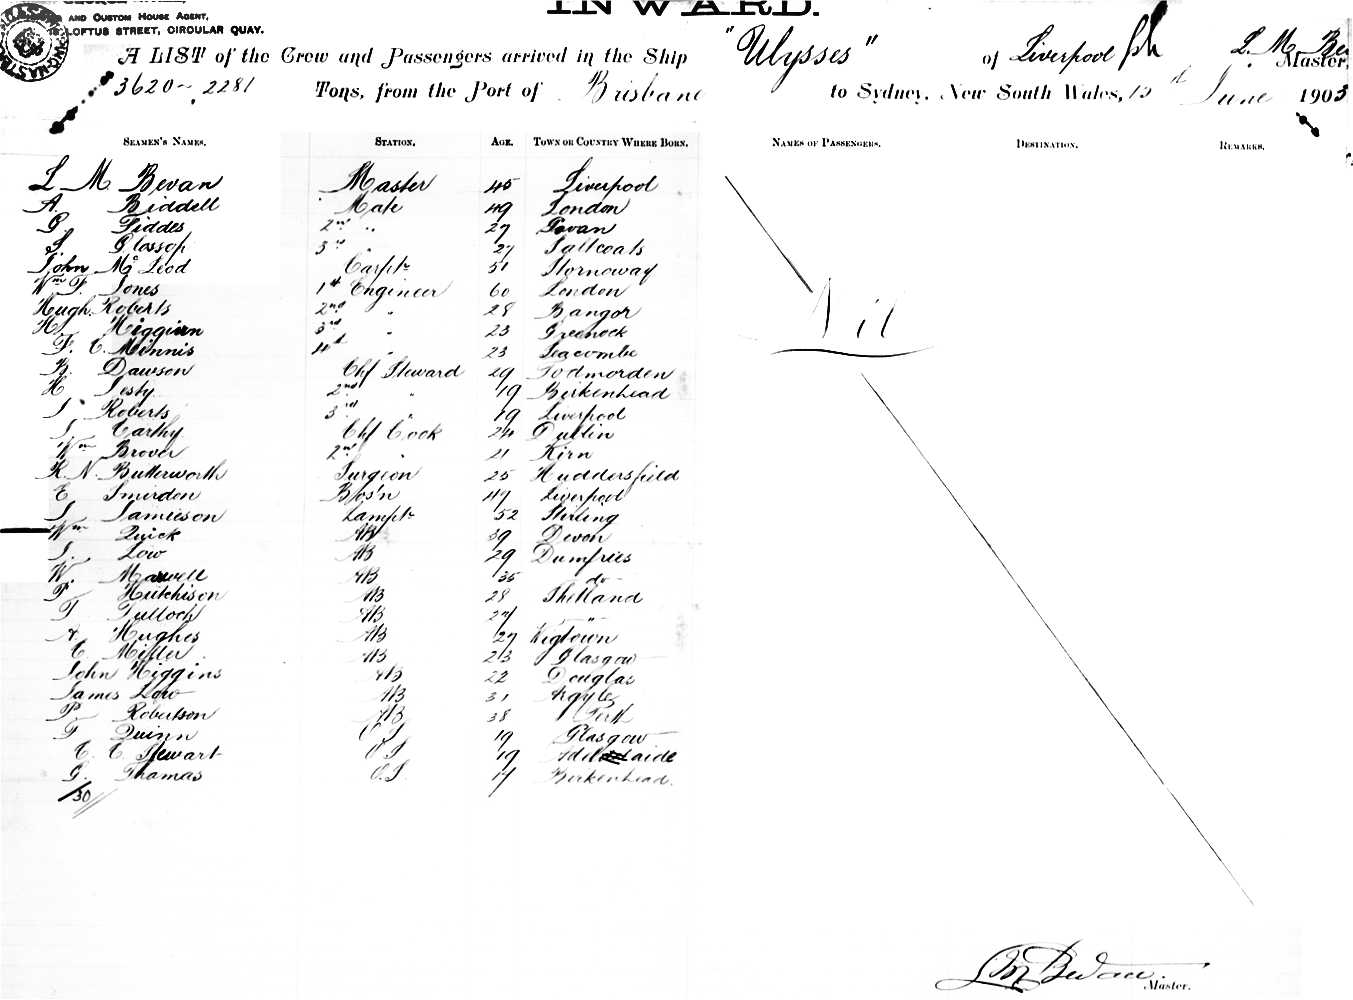 INWARD.
AND CUSTOM HOUSE AGENT,
LOFTUS STREET, CIRCULAR QUAY.
A LIST of the Crew and Passengers arrived in the Ship "Ulysses" of Liverpool L. M. Be Master,
3620 - 2281 Tons, from the Port of Brisbane to Sydney, New South Wales, 15 June 1903
SEAMEN'S NAMES. STATION. AGE. TOWN OR COUNTRY WHERE BORN. NAMES OF PASSENGERS. DESTINATION. REMARKS.
L M. Bevan Master 45 Liverpool
A. Biddell Mate 49 London
G Fiddes 2nd " 27 Govan
J. Glassop 3rd " 27 Saltcoats
John McLeod Carptr 51 Stornoway
Wm F. Jones 1st Engineer 60 London
Hugh Roberts 2nd " 28 Bangor
H. Higgins 3rd " 23 Greenock
F. C. Minnis 4th " 23 Seacombe
B. Dawson Chf Steward 29 Todmorden
H Testy 2nd " 19 Birkenhead
J. Roberts 3rd " 19 Liverpool
J Carthy Chf Cook 24 Dublin
Wm Brover 2nd " 21 Kirn
R. N. Butterworth Surgeon 25 Huddersfield
E Smirdon Bos'n 47 Liverpool
J Jamieson Lamptr 52 Stirling
Wm Quick AB 39 Devon
J. Low AB 29 Dumfries
W. Maxwell AB 35 do
P. Hutchison AB 28 Shetland
T Tulloch AB 27 "
A Hughes AB 27 Wigtown
C. Miller AB 23 Glasgow
John Higgins AB 22 Douglas
James Low AB 31 Argyle
P Robertson AB 38 Perth
T Quinn O.S 19 Glasgow
C. C. Stewart O.S 19 Adelaide
G. Thomas O.S. 17 Birkenhead.
/30
Nil
L M Bevan. Master.